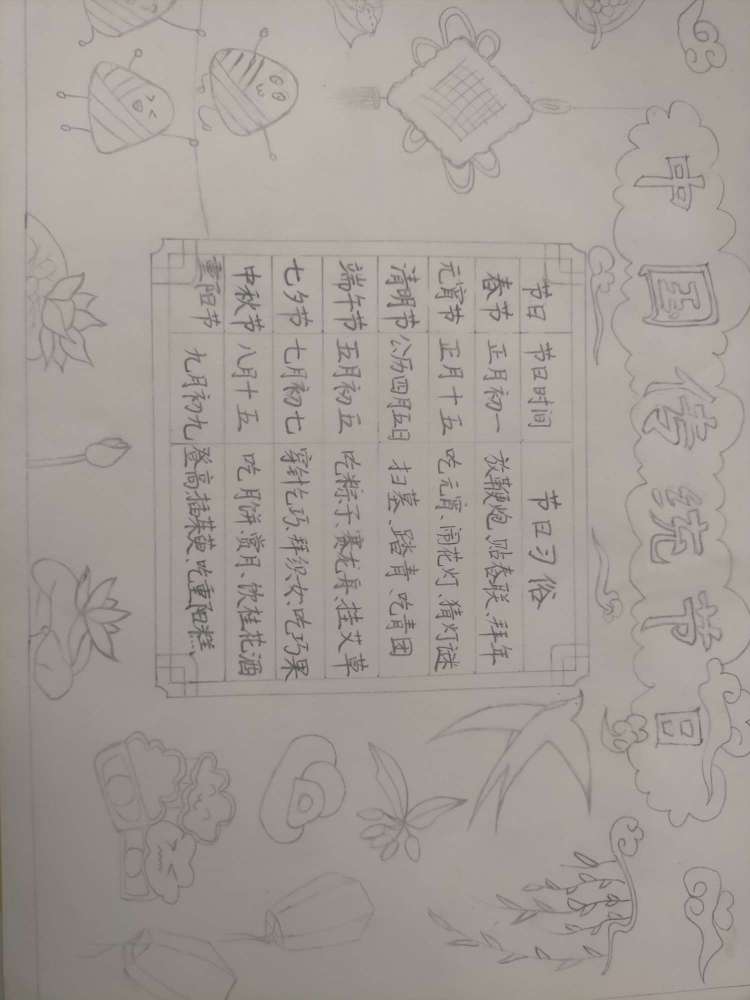 中国传统节日
节日 节日时间 节日习俗
春节 正月初一 放鞭炮、贴春联、拜年
元宵节 正月十五 吃元宵、闹花灯、猜灯谜
清明节 公历四月五日 扫墓、踏青、吃青团
端午节 五月初五 吃粽子、赛龙舟、挂艾草
七夕节 七月初七 穿针乞巧、拜织女、吃巧果
中秋节 八月十五 吃月饼、赏月、饮桂花酒
重阳节 九月初九 登高、插茱萸、吃重阳糕